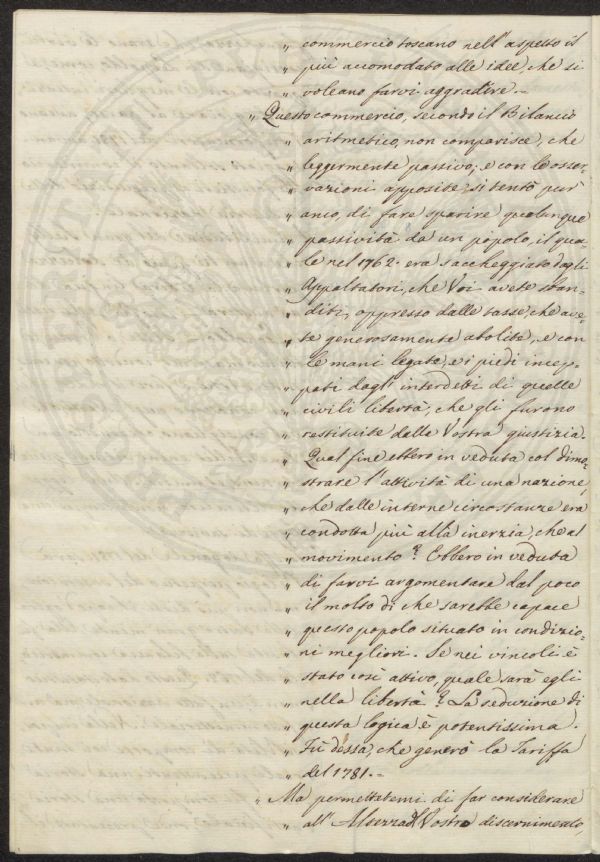 „ commercio toscano nell'aspetto il
„ più accomodato alle idee, che si
„ voleano farvi aggradire. —
„ Questo commercio, secondo il Bilancio
„ aritmetico, non comparisce, che
„ leggermente passivo; e con le osser-
„ vazioni apposite, si tentò pur
„ anco, di fare sparire qualunque
„ passività da un popolo, il qua-
„ le nel 1762. era saccheggiato dagli
„ Appaltatori, che Voi avete sban-
„ diti, oppresso dalle tasse, che ave-
„ te generosamente abolite, e con
„ le mani legate, e i piedi incep-
„ pati dagl'interdetti di quelle
„ civili libertà, che gli furono
„ restituite dalla Vostra giustizia.
„ Qual fine ebbero in veduta col dimo-
„ strare l'attività di una nazione,
„ che dalle interne circostanze era
„ condotta più alla inerzia, che al
„ movimento? Ebbero in veduta
„ di farvi argomentare dal poco
„ il molto di che sarebbe capace
„ questo popolo situato in condizio-
„ ni megliori. Se nei vincoli è
„ stato così attivo, quale sarà egli
„ nella libertà? La seduzione di
„ questa logica è potentissima.
„ Fù dessa, che generò la Tariffa
„ del 1781. =
„ Ma permettatemi di far considerare
„ all' Vostro discernimento,